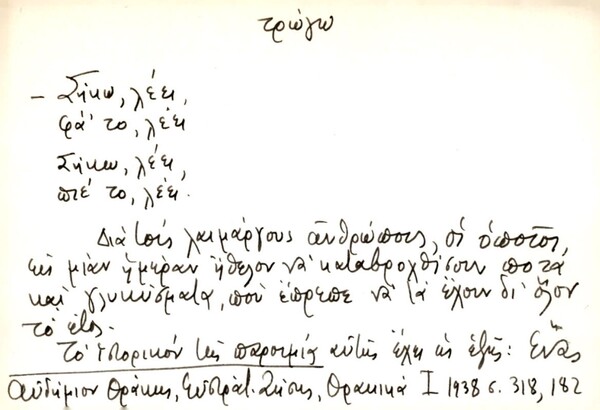 τρώγω
– Σήκω, λέει,
φά' το, λέει
Σήκω, λέει,
πιέ το, λέει.
Διὰ τοὺς λαιμάργους ἀνθρώπους, οἱ ὁποῖοι,
εἰς μίαν ἡμέραν ἤθελον νὰ καταβροχθίσουν ποτὰ
καὶ γλυκύσματα, ποὺ ἔπρεπε νὰ τὰ ἔχουν δι' ὅλον
τὸ ἔτος.
Τὸ ἱστορικόν τῆς παροιμίας αὐτῆς ἔχει ὡς ἑξῆς: Ἕνας
Αὐδήμιον Θράκης, Εὐστράτ. Ζήσης, Θρακικά I 1938 σ. 318, 182